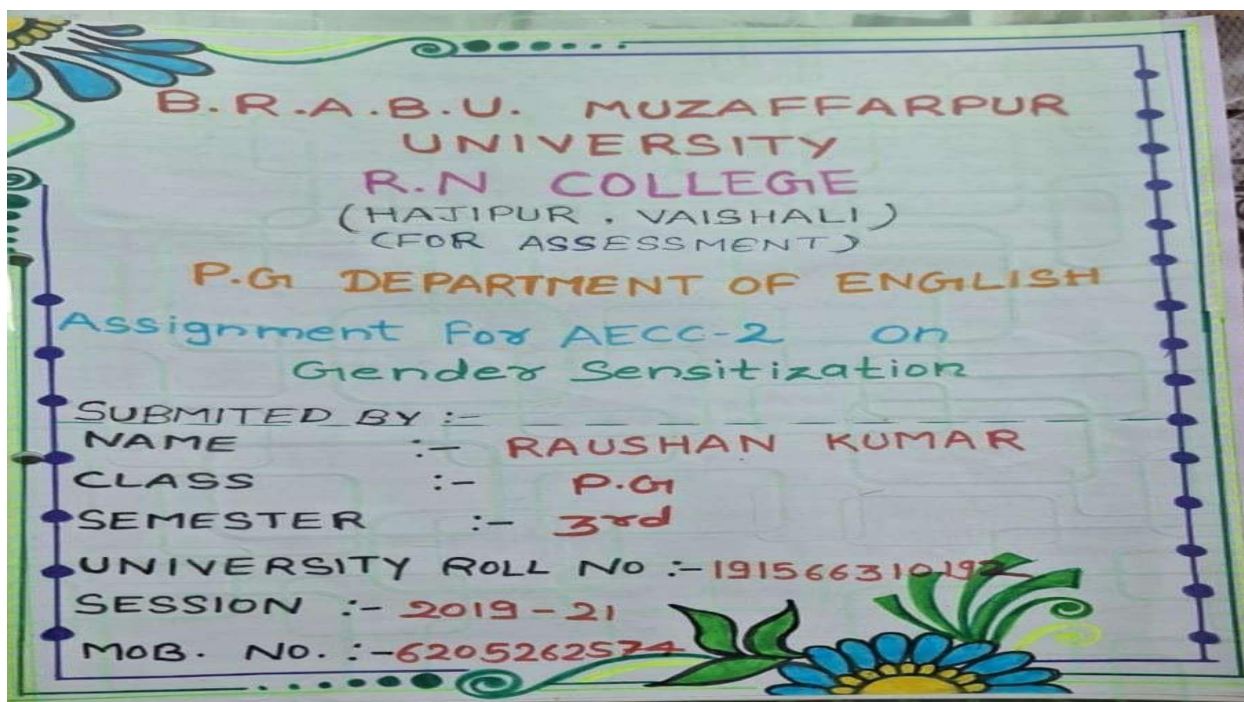 B.R.A.B.U. MUZAFFARPUR
UNIVERSITY
R.N COLLEGE
(HAJIPUR, VAISHALI)
(FOR ASSESSMENT)
P.G DEPARTMENT OF ENGLISH
Assignment For AECC-2 On
Gender Sensitization
SUBMITED BY :-
NAME :- RAUSHAN KUMAR
CLASS :- P.G
SEMESTER :- 3rd
UNIVERSITY ROLL NO :- 191566310192
SESSION :- 2019-21
MOB. NO. :- 6205262574